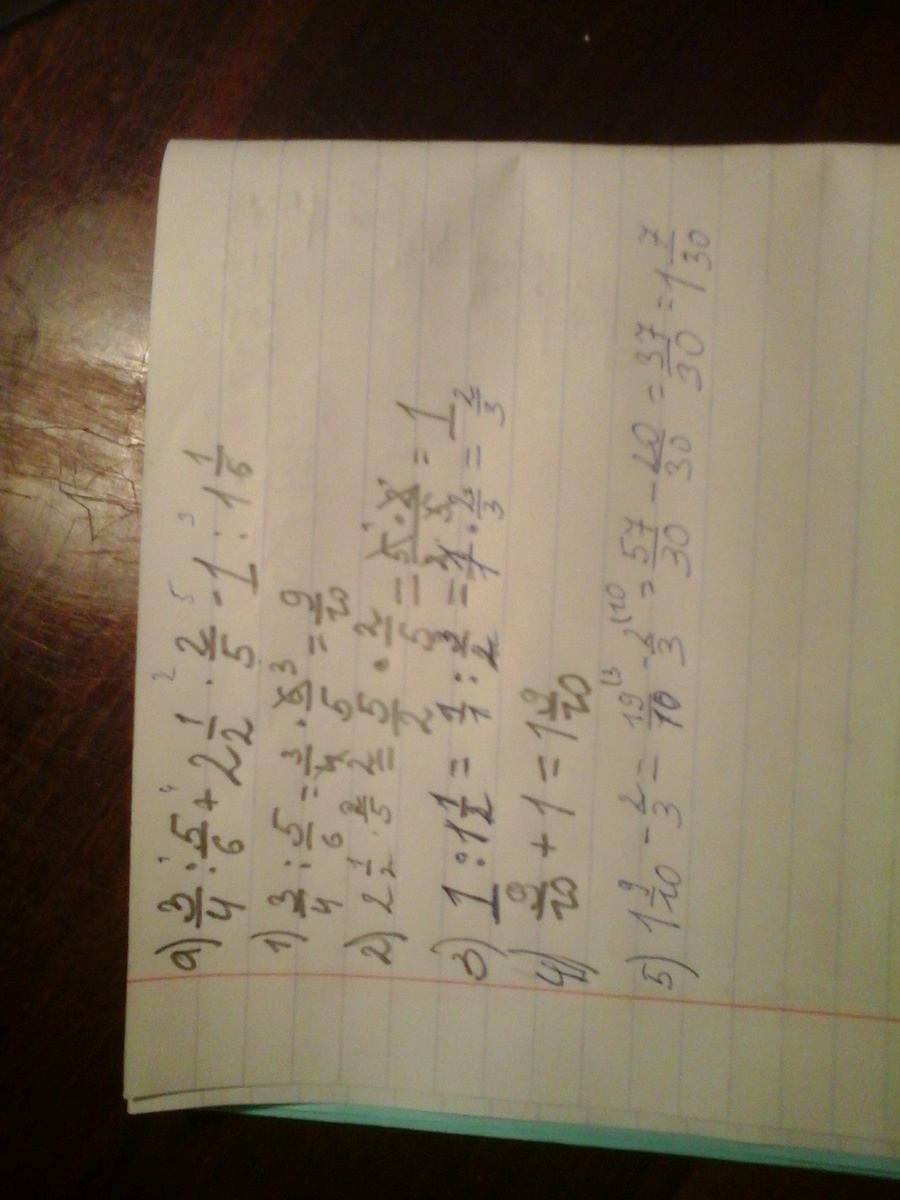 а) 3/4 : 5/6 + 2 1/2 · 2/5 - 1 : 1 1/6
1 4 2 5 3
1) 3/4 : 5/6 = 3/4 · 6 3/5 = 9/10
2) 2 1/2 · 2/5 = 5/2 · 2/5 = 5·2/ = 1
3) 1 : 1 1/2 = 1/1 : 3/2 = 1/1 · 2/3 = 2/3
4) 9/10 + 1 = 1 9/10
5) 1 9/10 - 2/3 = 19/10 (3 - 2/3 (10 = 57/30 - 20/30 = 37/30 = 1 7/30